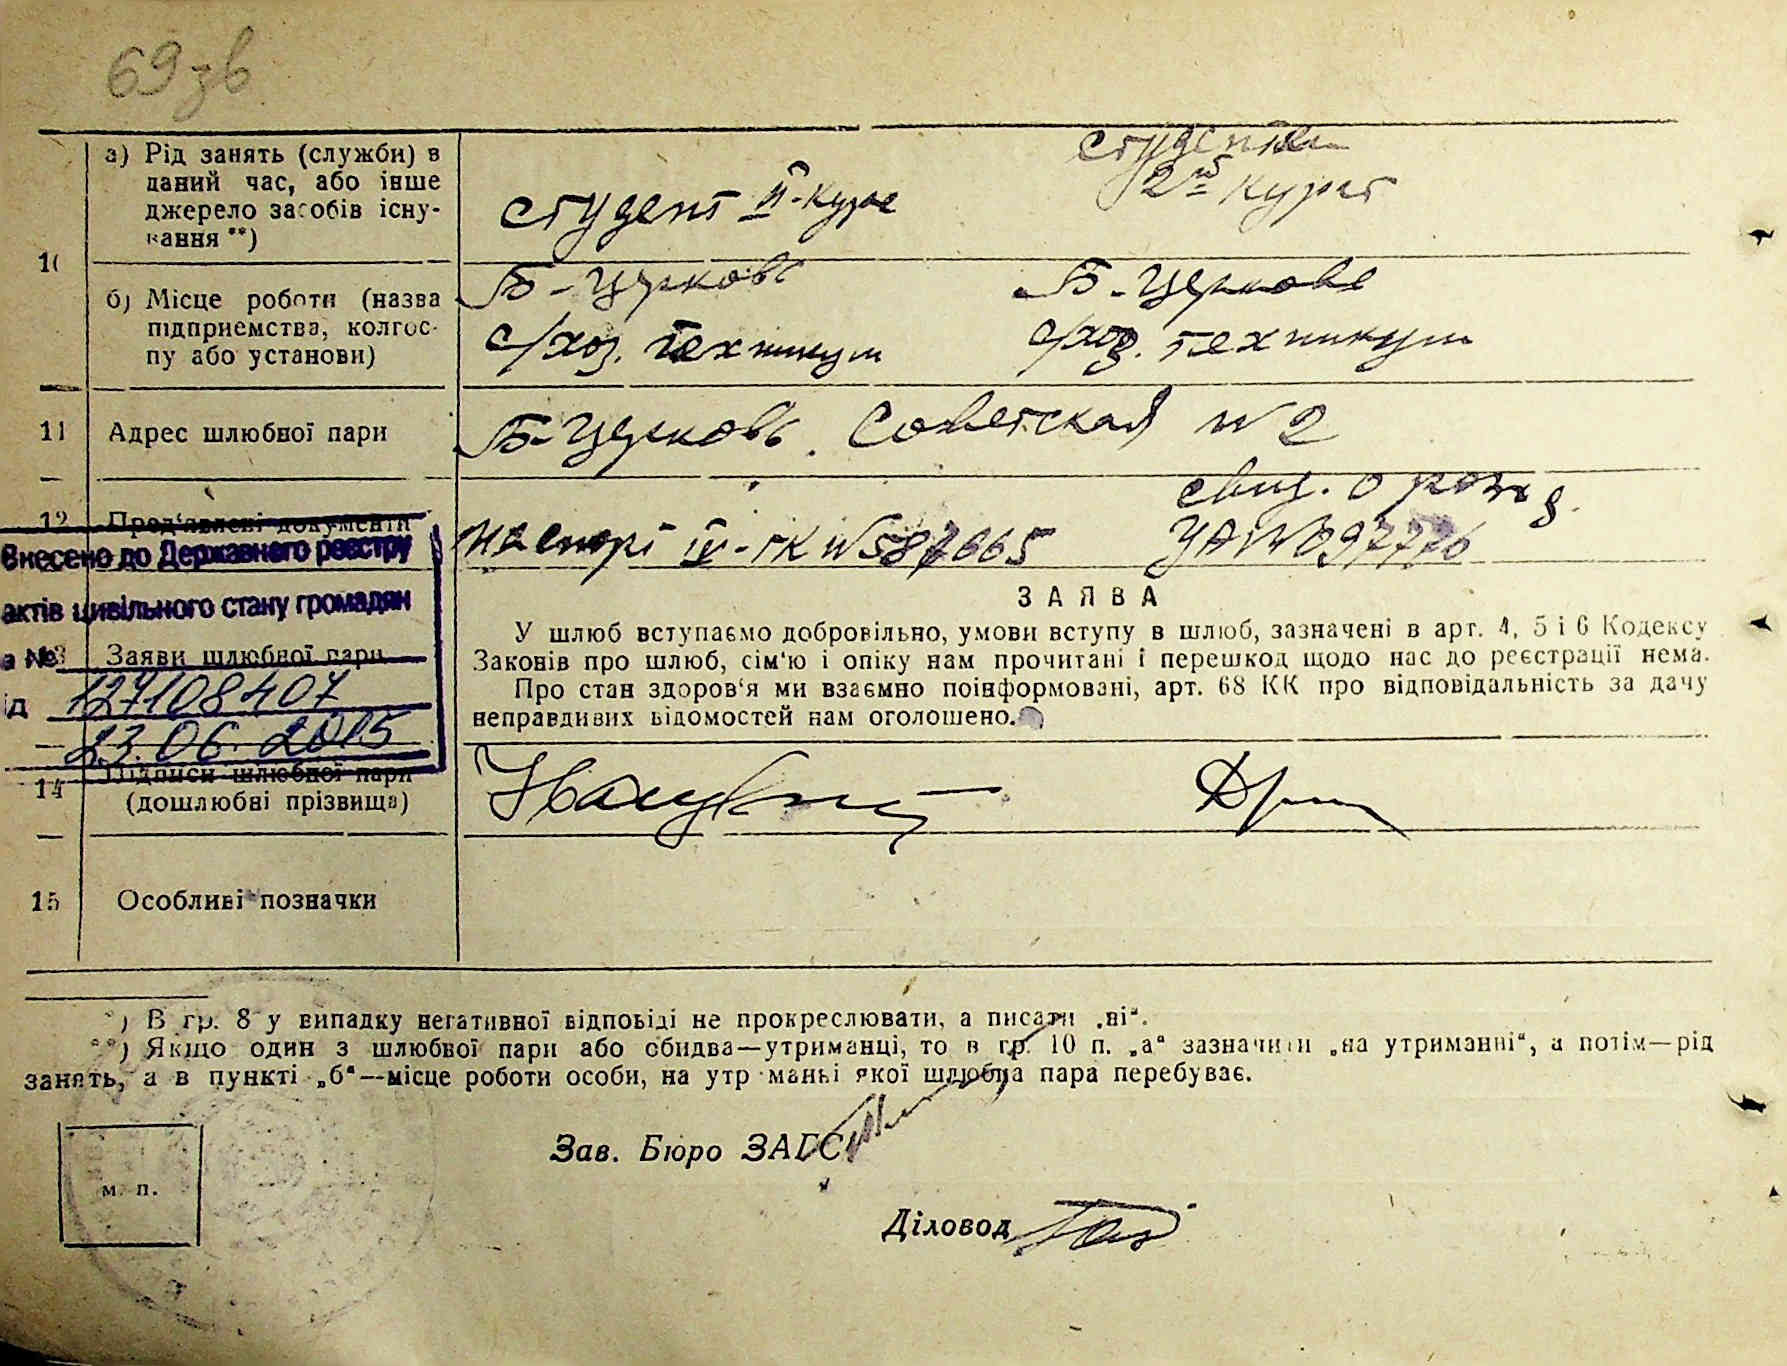 69зв
10
а) Рід занять (служби) в
даний час, або інше
джерело засобів існу-
вання **)
студент II-курс
студентка
2й курс
б) Місце роботи (назва
підприємства, колгос-
пу або установи)
Б-Церковь
с/хоз. техникум
Б-Церкове
с/хоз. техникум
11 Адрес шлюбної пари
Б-Церковь. Советская № 2
12 Пред'явлені документи
паспорт IV-ГК № 587665
свид. о рожд.
УА № 097776
Внесено до Державного реєстру
актів цивільного стану громадян
за №
127108407
від
23.06.2015
13 Заяви шлюбної пари
ЗАЯВА
У шлюб вступаємо добровільно, умови вступу в шлюб, зазначені в арт. 4, 5 і 6 Кодексу
Законів про шлюб, сім'ю і опіку нам прочитані і перешкод щодо нас до реєстрації нема.
Про стан здоров'я ми взаємно поінформовані, арт. 68 КК про відповідальність за дачу
неправдивих відомостей нам оголошено.
14 Підписи шлюбної пари
(дошлюбні прізвища)
15 Особливі позначки
*) В гр. 8 у випадку негативної відповіді не прокреслювати, а писати „ні“.
**) Якщо один з шлюбної пари або обидва—утриманці, то в гр. 10 п. „а“ зазначити „на утриманні“, а потім—рід
занять, а в пункті „б“—місце роботи особи, на утр маньі якої шлюбна пара перебуває.
Зав. Бюро ЗАГС
м. п.
Діловод